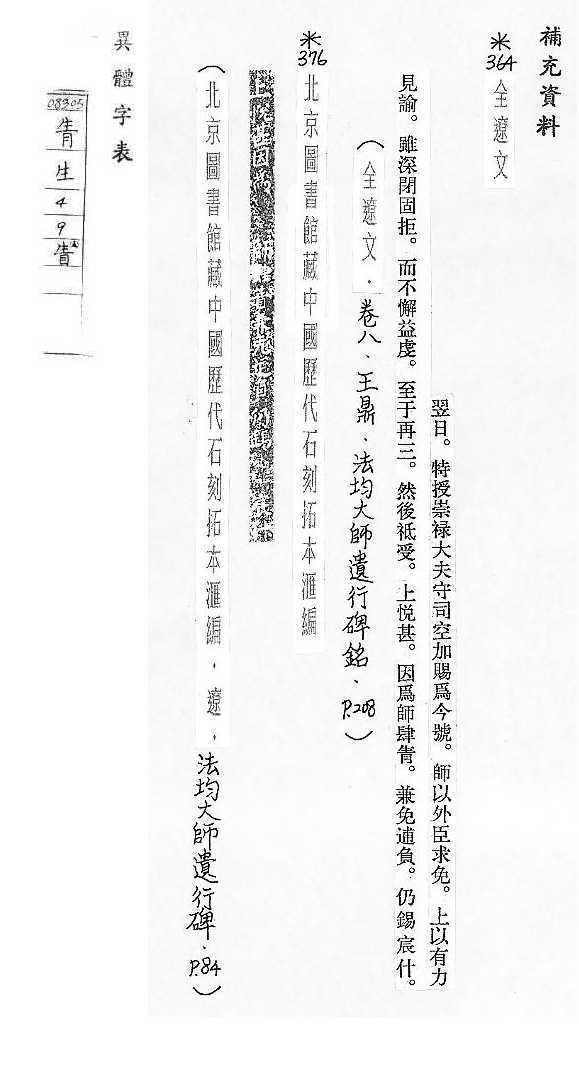 補充資料
*364 全遼文
翌日。特授崇禄大夫守司空加賜爲今號。師以外臣求免。上以有力
見諭。雖深閉固拒。而不懈益虔。至于再三。然後祗受。上悦甚。因爲師肆眚。兼免逋負。仍錫宸什。
（全遼文．卷八、王鼎、法均大師遺行碑銘、P.208）
*376 北京圖書館藏中國歷代石刻拓本滙編
（北京圖書館藏中國歷代石刻拓本滙編，遼，法均大師遺行碑、P.84）
異體字表
08305
生
4
9